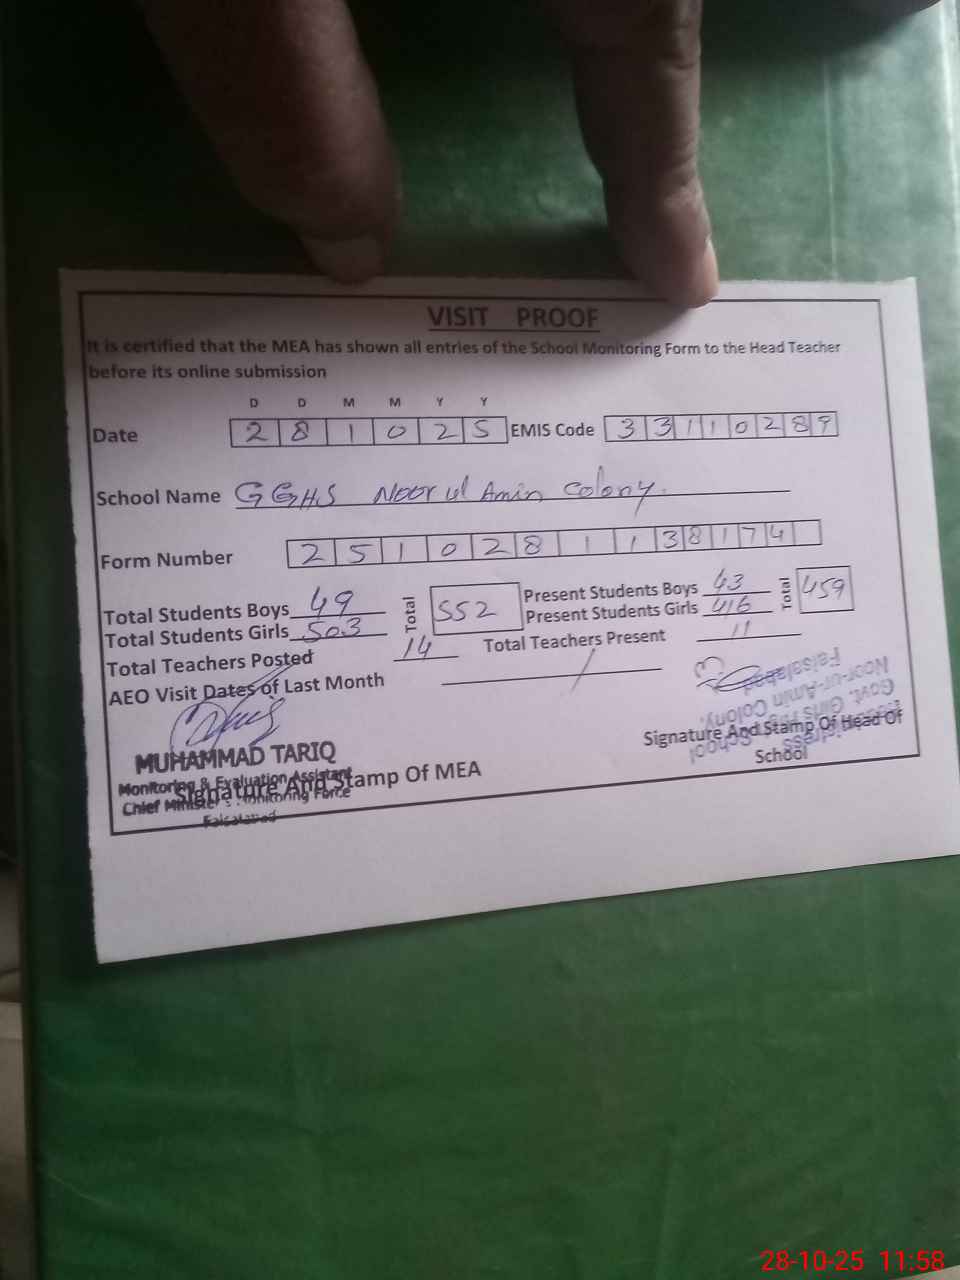 VISIT PROOF
It is certified that the MEA has shown all entries of the School Monitoring Form to the Head Teacher
before its online submission
D D M M Y Y
Date 2 8 1 0 2 5 EMIS Code 3 3 1 1 0 2 8 9
School Name GGHS Noor ul Amin Colony.
Form Number 2 5 1 0 2 8 1 1 3 8 1 7 4
Total Students Boys 49 Total 552 Present Students Boys 43 Total 459
Total Students Girls 503 Present Students Girls 416
Total Teachers Posted 14 Total Teachers Present 11
AEO Visit Dates of Last Month /
MUHAMMAD TARIQ
Monitoring & Evaluation Assistant
Chief Minister's Monitoring Force
Faisalabad
Signature And Stamp Of MEA
Signature And Stamp Of Head Of
School
Govt. Girls School
Noor-ur-Amin Colony.
Faisalabad
28-10-25 11:58